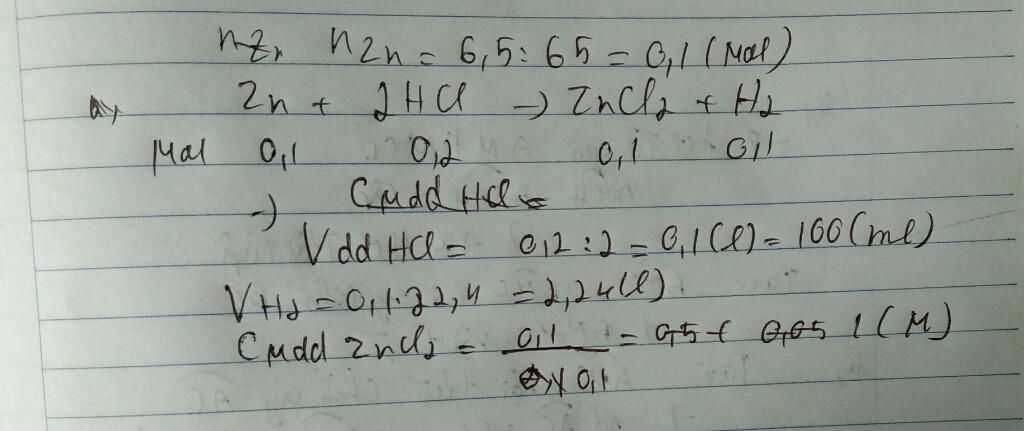 nZn nZn = 6,5 : 65 = 0,1 (mol)
a, Zn + 2HCl → ZnCl2 + H2
Mol 0,1 0,2 0,1 0,1
→ CMdd HCl =
Vdd HCl = 0,2 : 2 = 0,1 (l) = 100 (ml)
VH2 = 0,1.22,4 = 2,24 (l).
CMdd ZnCl2 = 0,1 / 0,1 = 0,5 0,05 1 (M)